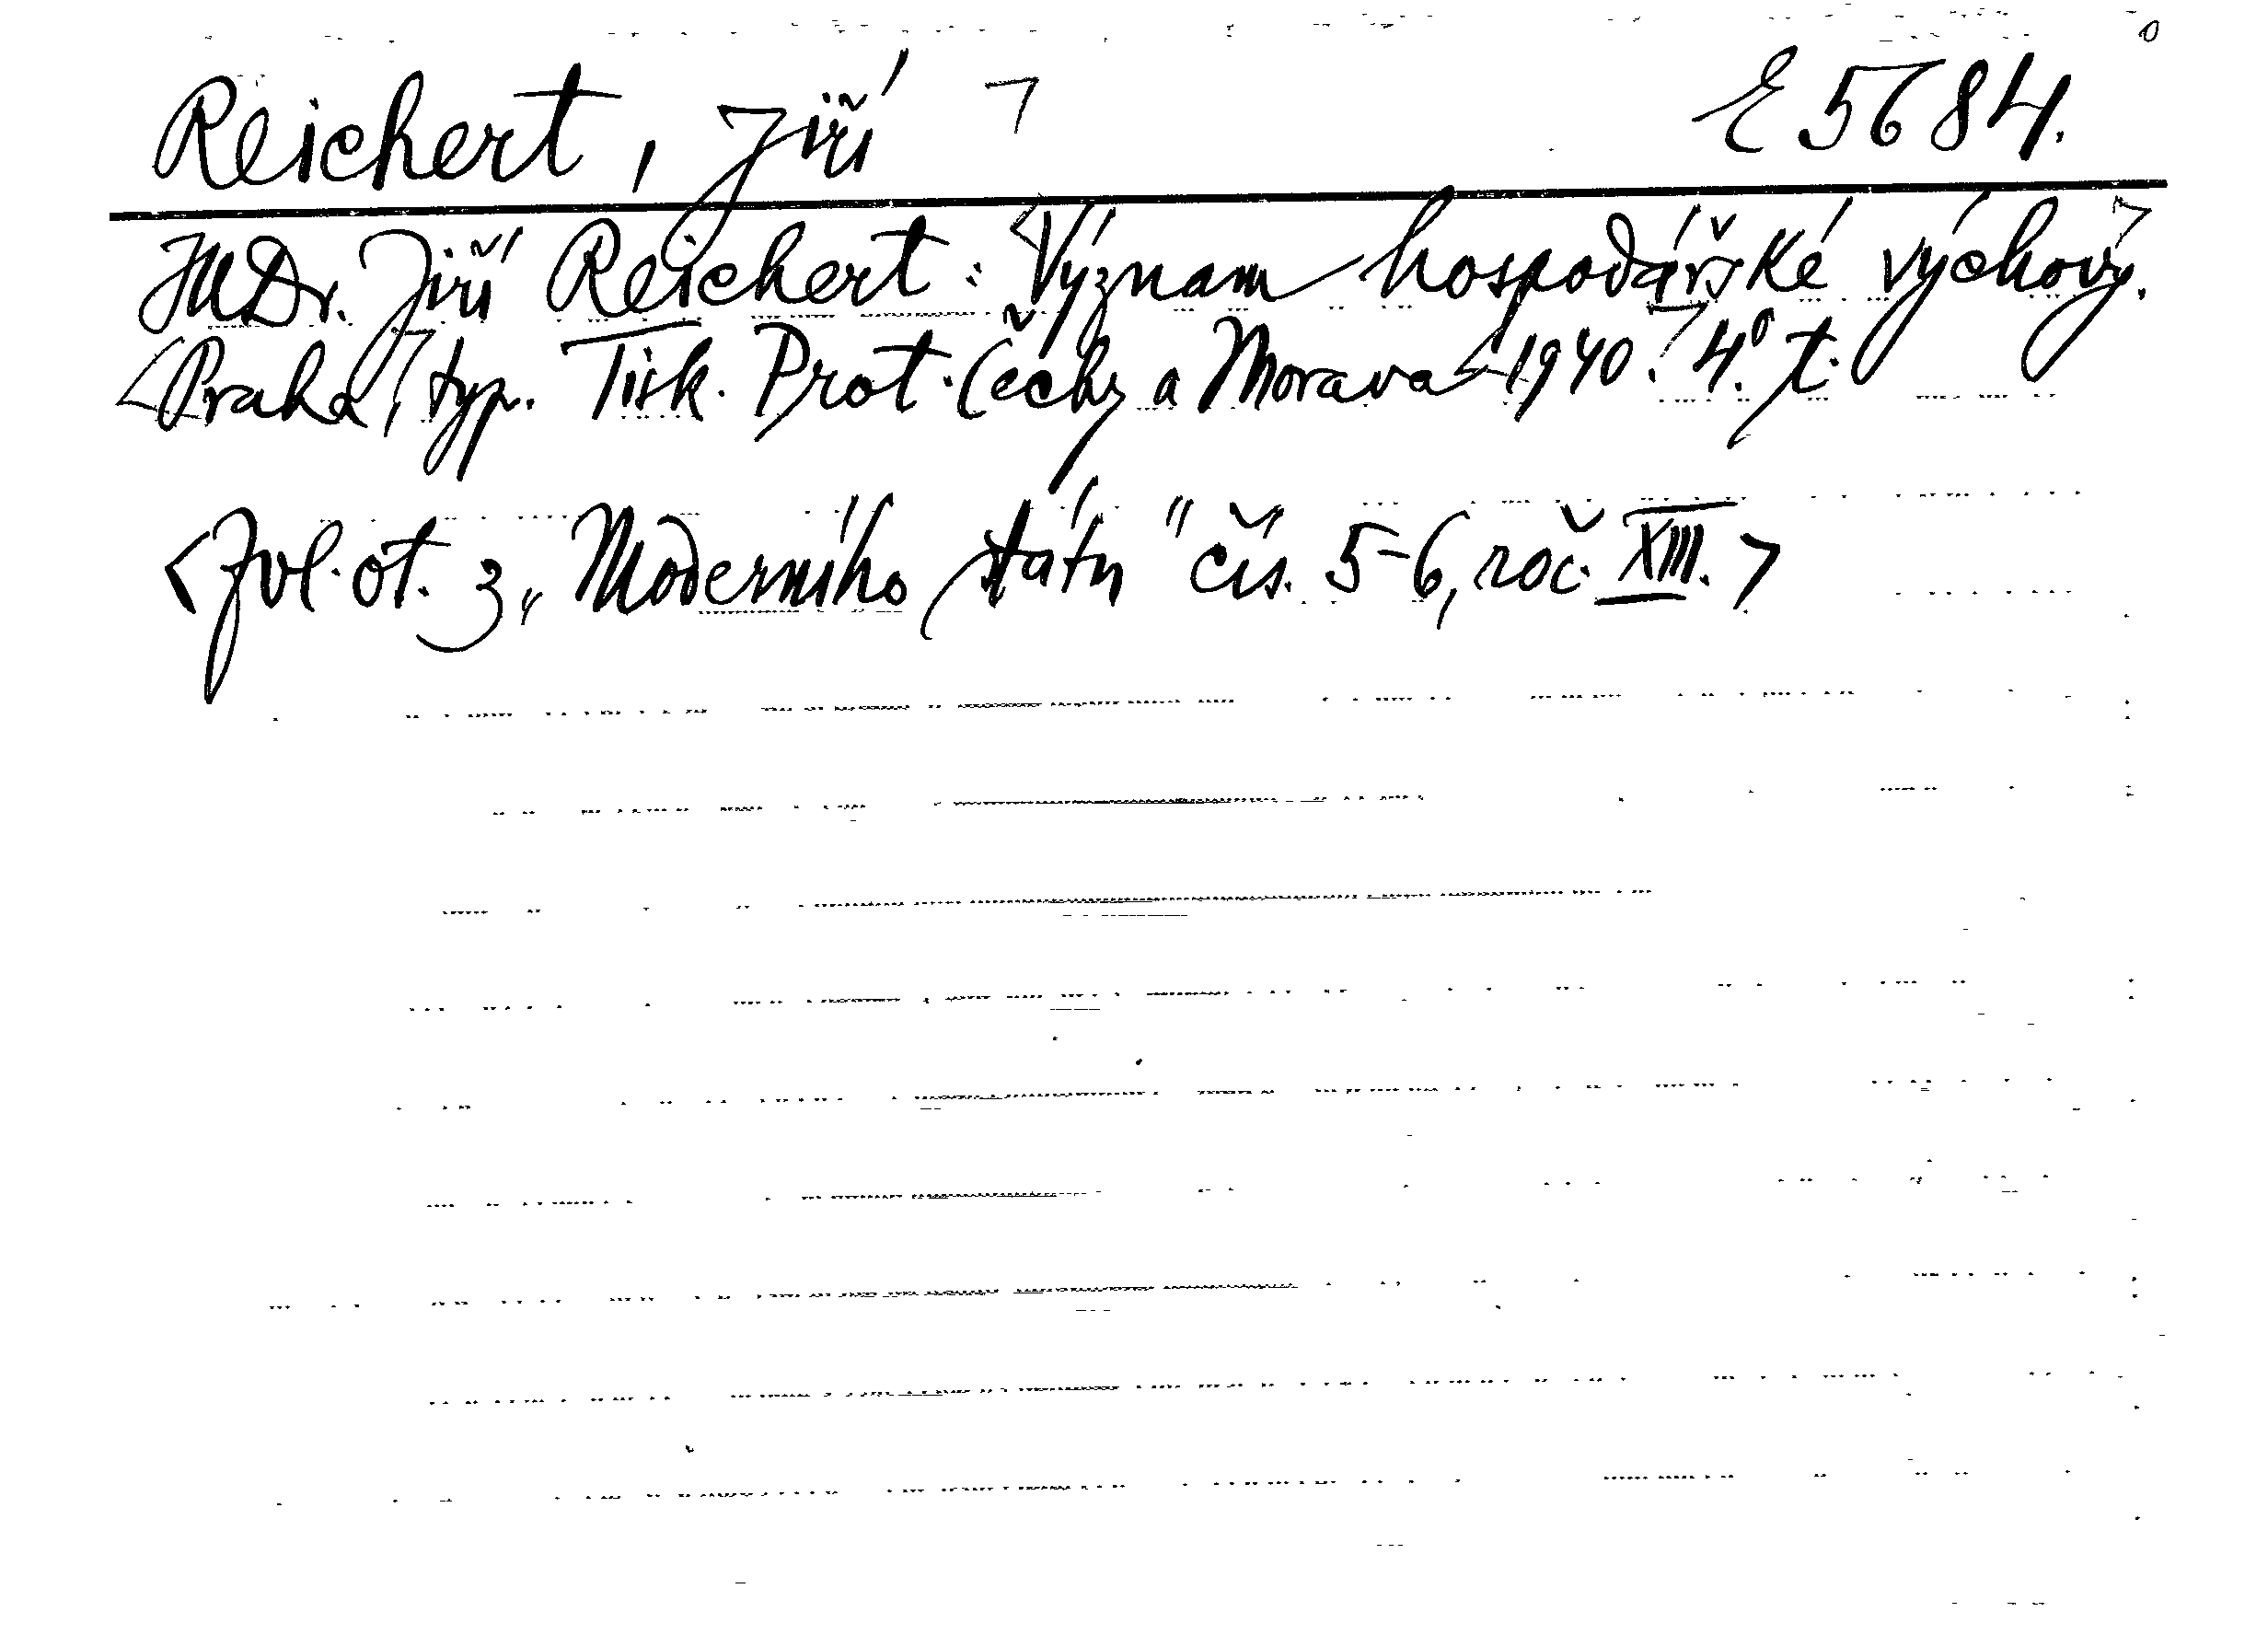 Reichert, Jiří ㄱ E 5684.
JUDr. Jiří Reichert: <Význam hospodářské výchovy.>
<Praha>, typ. Tisk. Prot. Čechy a Morava <1940.> 4.° t.
<Zvl. ot. z „Moderního státu" čís. 5-6, roč. XIII.>